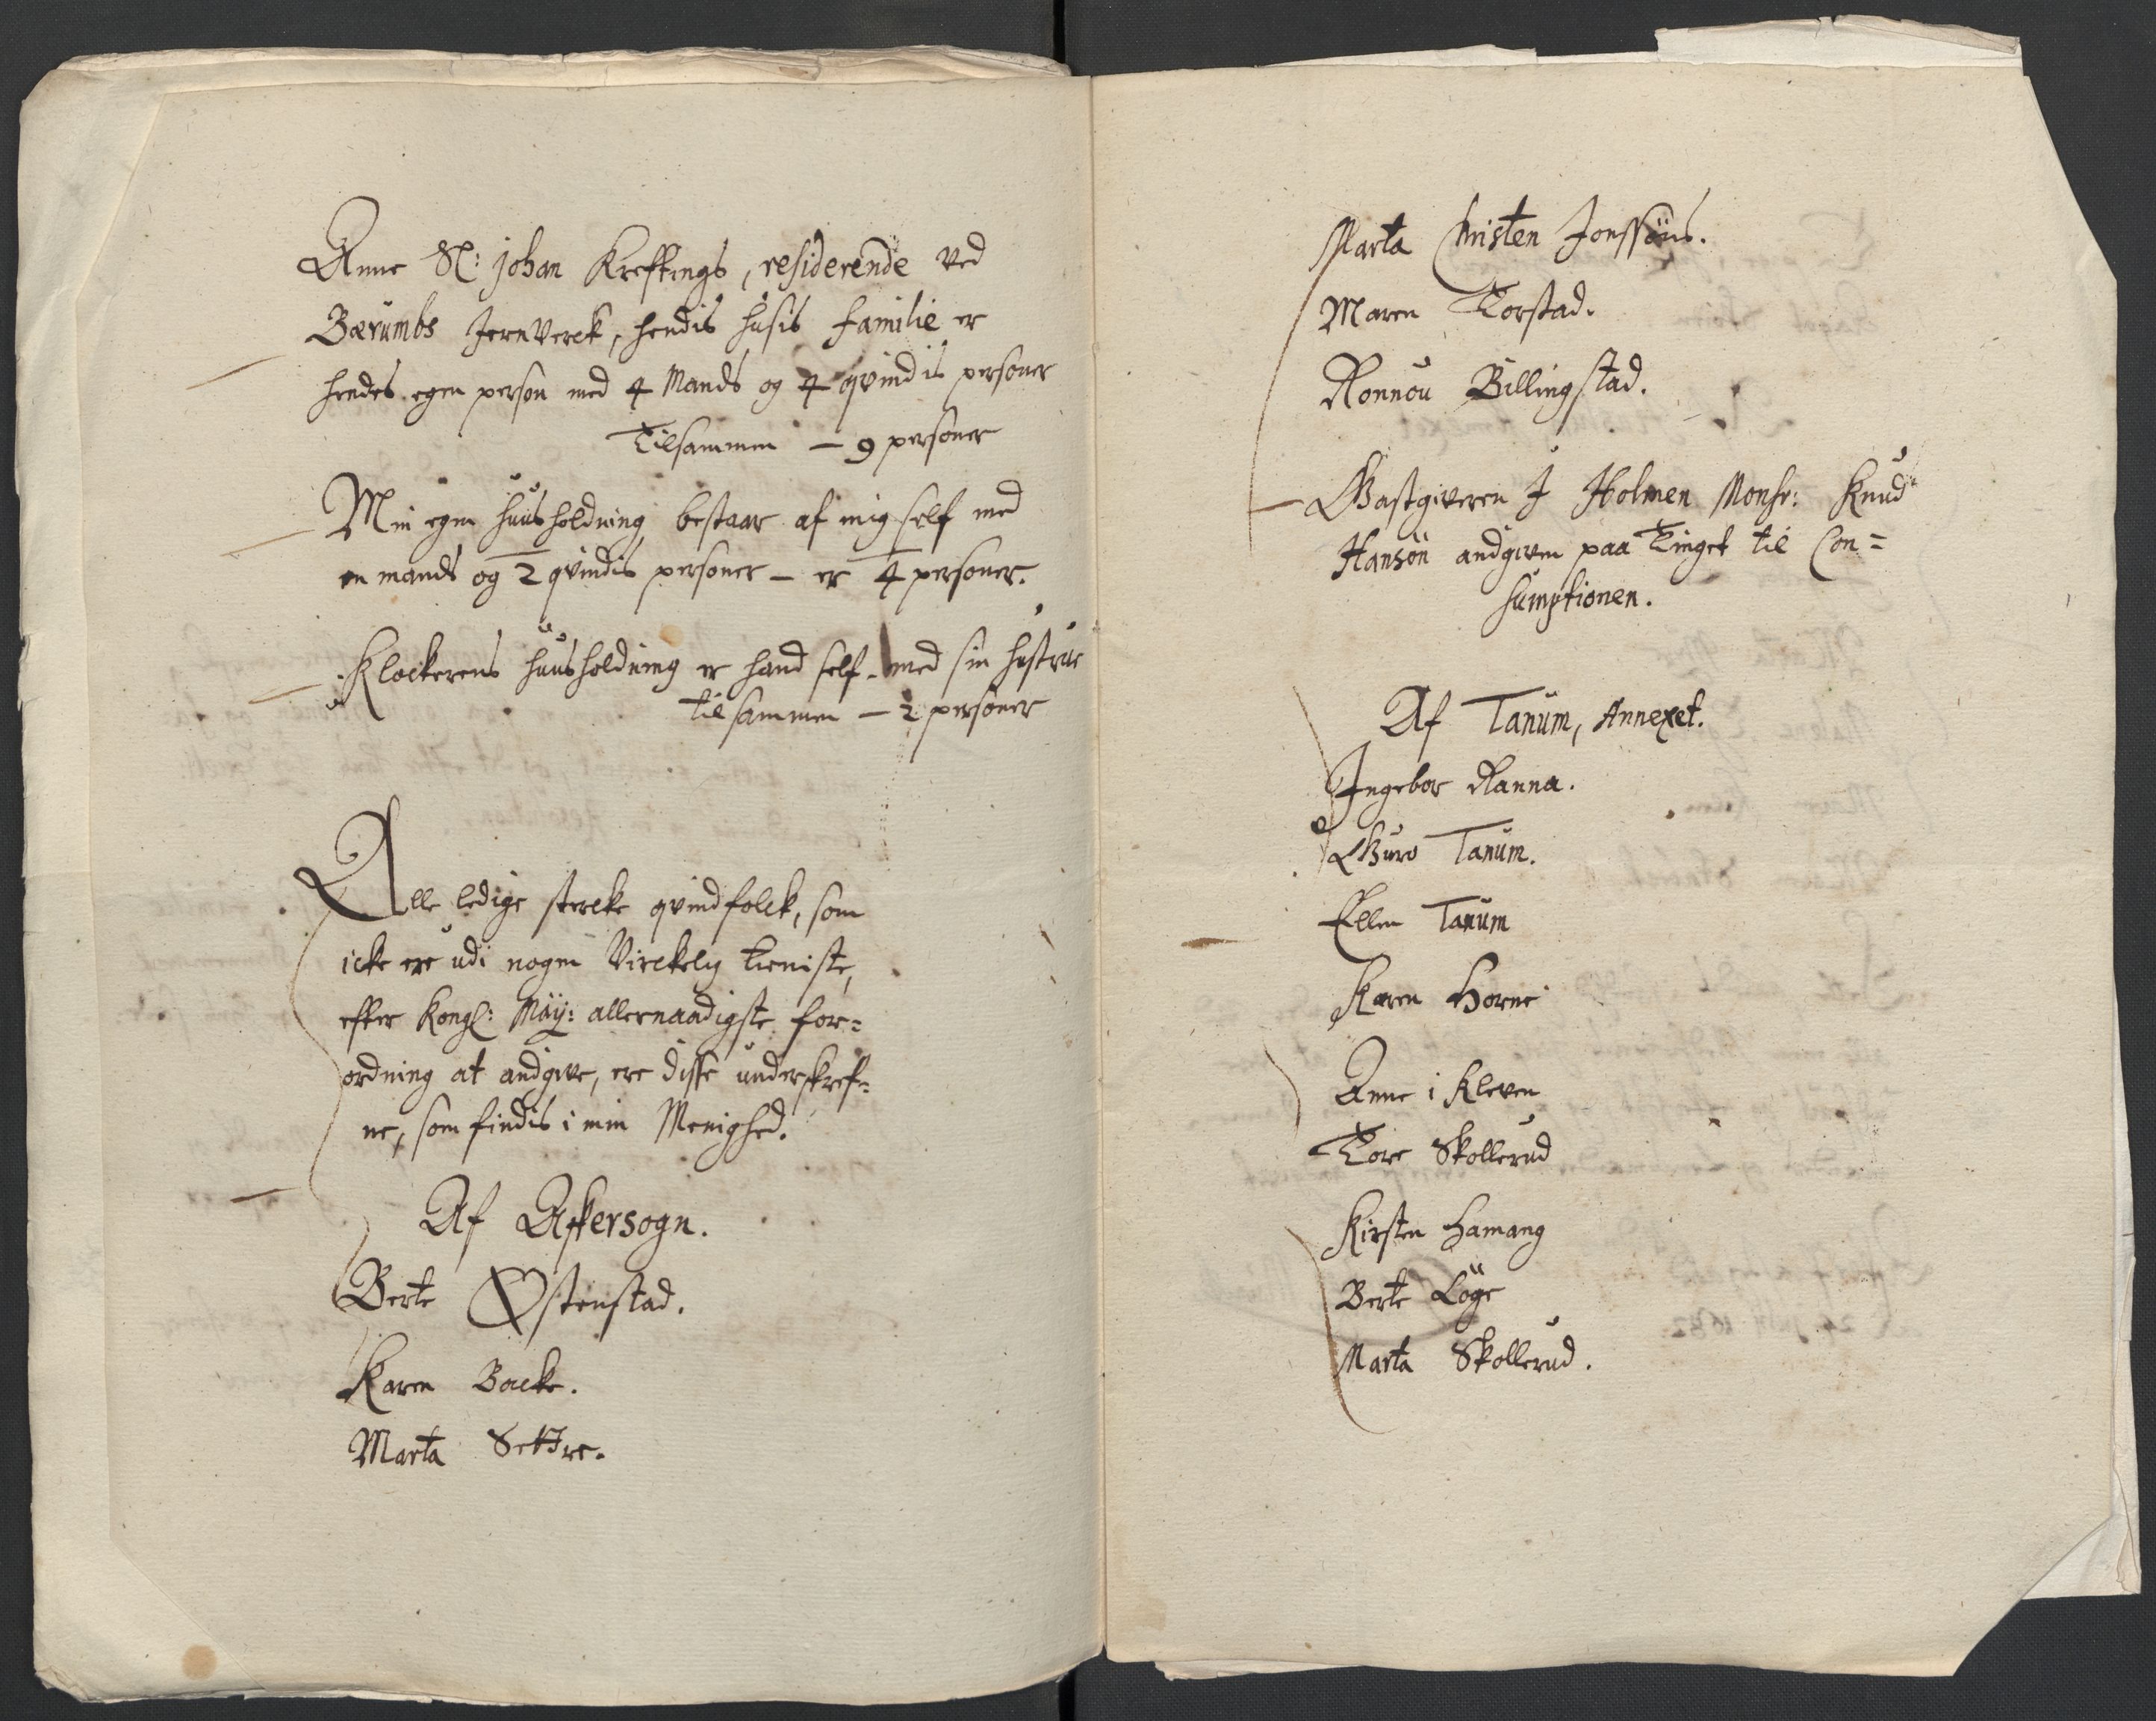 Anne Sl: johan Kreftings, residerende ved
Bærumbs JernVerck, hendis husis familie er
hendes egen person med 4 Mands og 4 qvindis personer
Tilsammen – 9 personer
Min egen huusholdning bestaar af mig self med
en mands og 2 qvindis personer – er 4 personer.
Klockerens huusholdning er hand self med sin hustrue
tilsammen – 2 personer
Alle ledige stercke qvindfolck, som
icke ere udi nogen Virckelig tieniste,
efter Kongl: Maÿ: allernaadigste for=
ordning at andgive, ere disse underskref=
ne, som findis i min Menighed.
Af Askersogn.
Berte Østenstad.
Karen Backe.
Marta Settre.
Marta Christen Jonssöns.
Maren Torstad.
Ronnou Billingstad.
Gastgiveren J Holmen Monsr: Knud
Hansön andgiven paa Tinget til Con=
sumptionen.
Af Tanum, Annexet.
Ingebor Ranna.
Guro Tanum.
Ellen Tanum
Karen Horne
Anne i Kleven
Tore Skollerud
Kirsten Hamang
Berte Löge
Marta Skollerud.